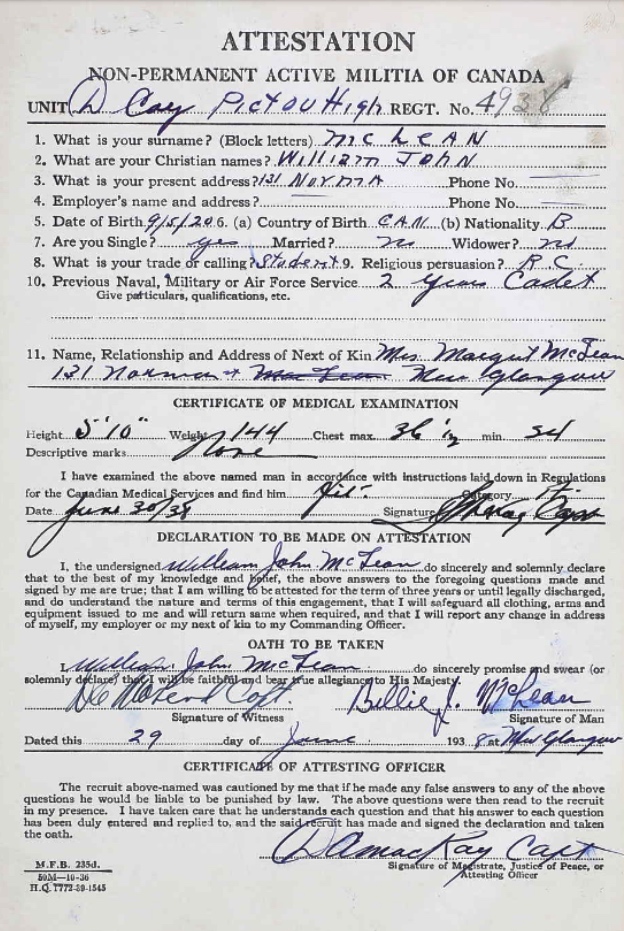 ATTESTATION
NON-PERMANENT ACTIVE MILITIA OF CANADA
UNIT D Coy Pictou High REGT. No. 4938
1. What is your surname? (Block letters) McLEAN
2. What are your Christian names? William JOHN
3. What is your present address? 131 NORMA Phone No.
4. Employer's name and address? Phone No.
5. Date of Birth 9/5/20 6. (a) Country of Birth CAN (b) Nationality B
7. Are you Single? yes Married? no Widower? no
8. What is your trade or calling? Student 9. Religious persuasion? R C.
10. Previous Naval, Military or Air Force Service 2 years Cadet
Give particulars, qualifications, etc.
11. Name, Relationship and Address of Next of Kin Mrs. Margret McLean
131 Norman st New Glasgow
CERTIFICATE OF MEDICAL EXAMINATION
Height 5'10" Weight 144 Chest max. 36 ½ min. 34
Descriptive marks None
I have examined the above named man in accordance with instructions laid down in Regulations
for the Canadian Medical Services and find him fit. Category
Date June 30/38 Signature Capt
DECLARATION TO BE MADE ON ATTESTATION
I, the undersigned William John McLean do sincerely and solemnly declare
that to the best of my knowledge and belief, the above answers to the foregoing questions made and
signed by me are true; that I am willing to be attested for the term of three years or until legally discharged,
and do understand the nature and terms of this engagement, that I will safeguard all clothing, arms and
equipment issued to me and will return same when required, and that I will report any change in address
of myself, my employer or my next of kin to my Commanding Officer.
OATH TO BE TAKEN
I, William John McLean do sincerely promise and swear (or
solemnly declare) that I will be faithful and bear true allegiance to His Majesty.
Capt. Billie J. McLean
Signature of Witness Signature of Man
Dated this 29 day of June 1938 at New Glasgow
CERTIFICATE OF ATTESTING OFFICER
The recruit above-named was cautioned by me that if he made any false answers to any of the above
questions he would be liable to be punished by law. The above questions were then read to the recruit
in my presence. I have taken care that he understands each question and that his answer to each question
has been duly entered and replied to, and the said recruit has made and signed the declaration and taken
the oath.
D A MacKay Capt
Signature of Magistrate, Justice of Peace, or
Attesting Officer
M.F.B. 235d.
50M—10-36
H.Q. 1772-39-1545